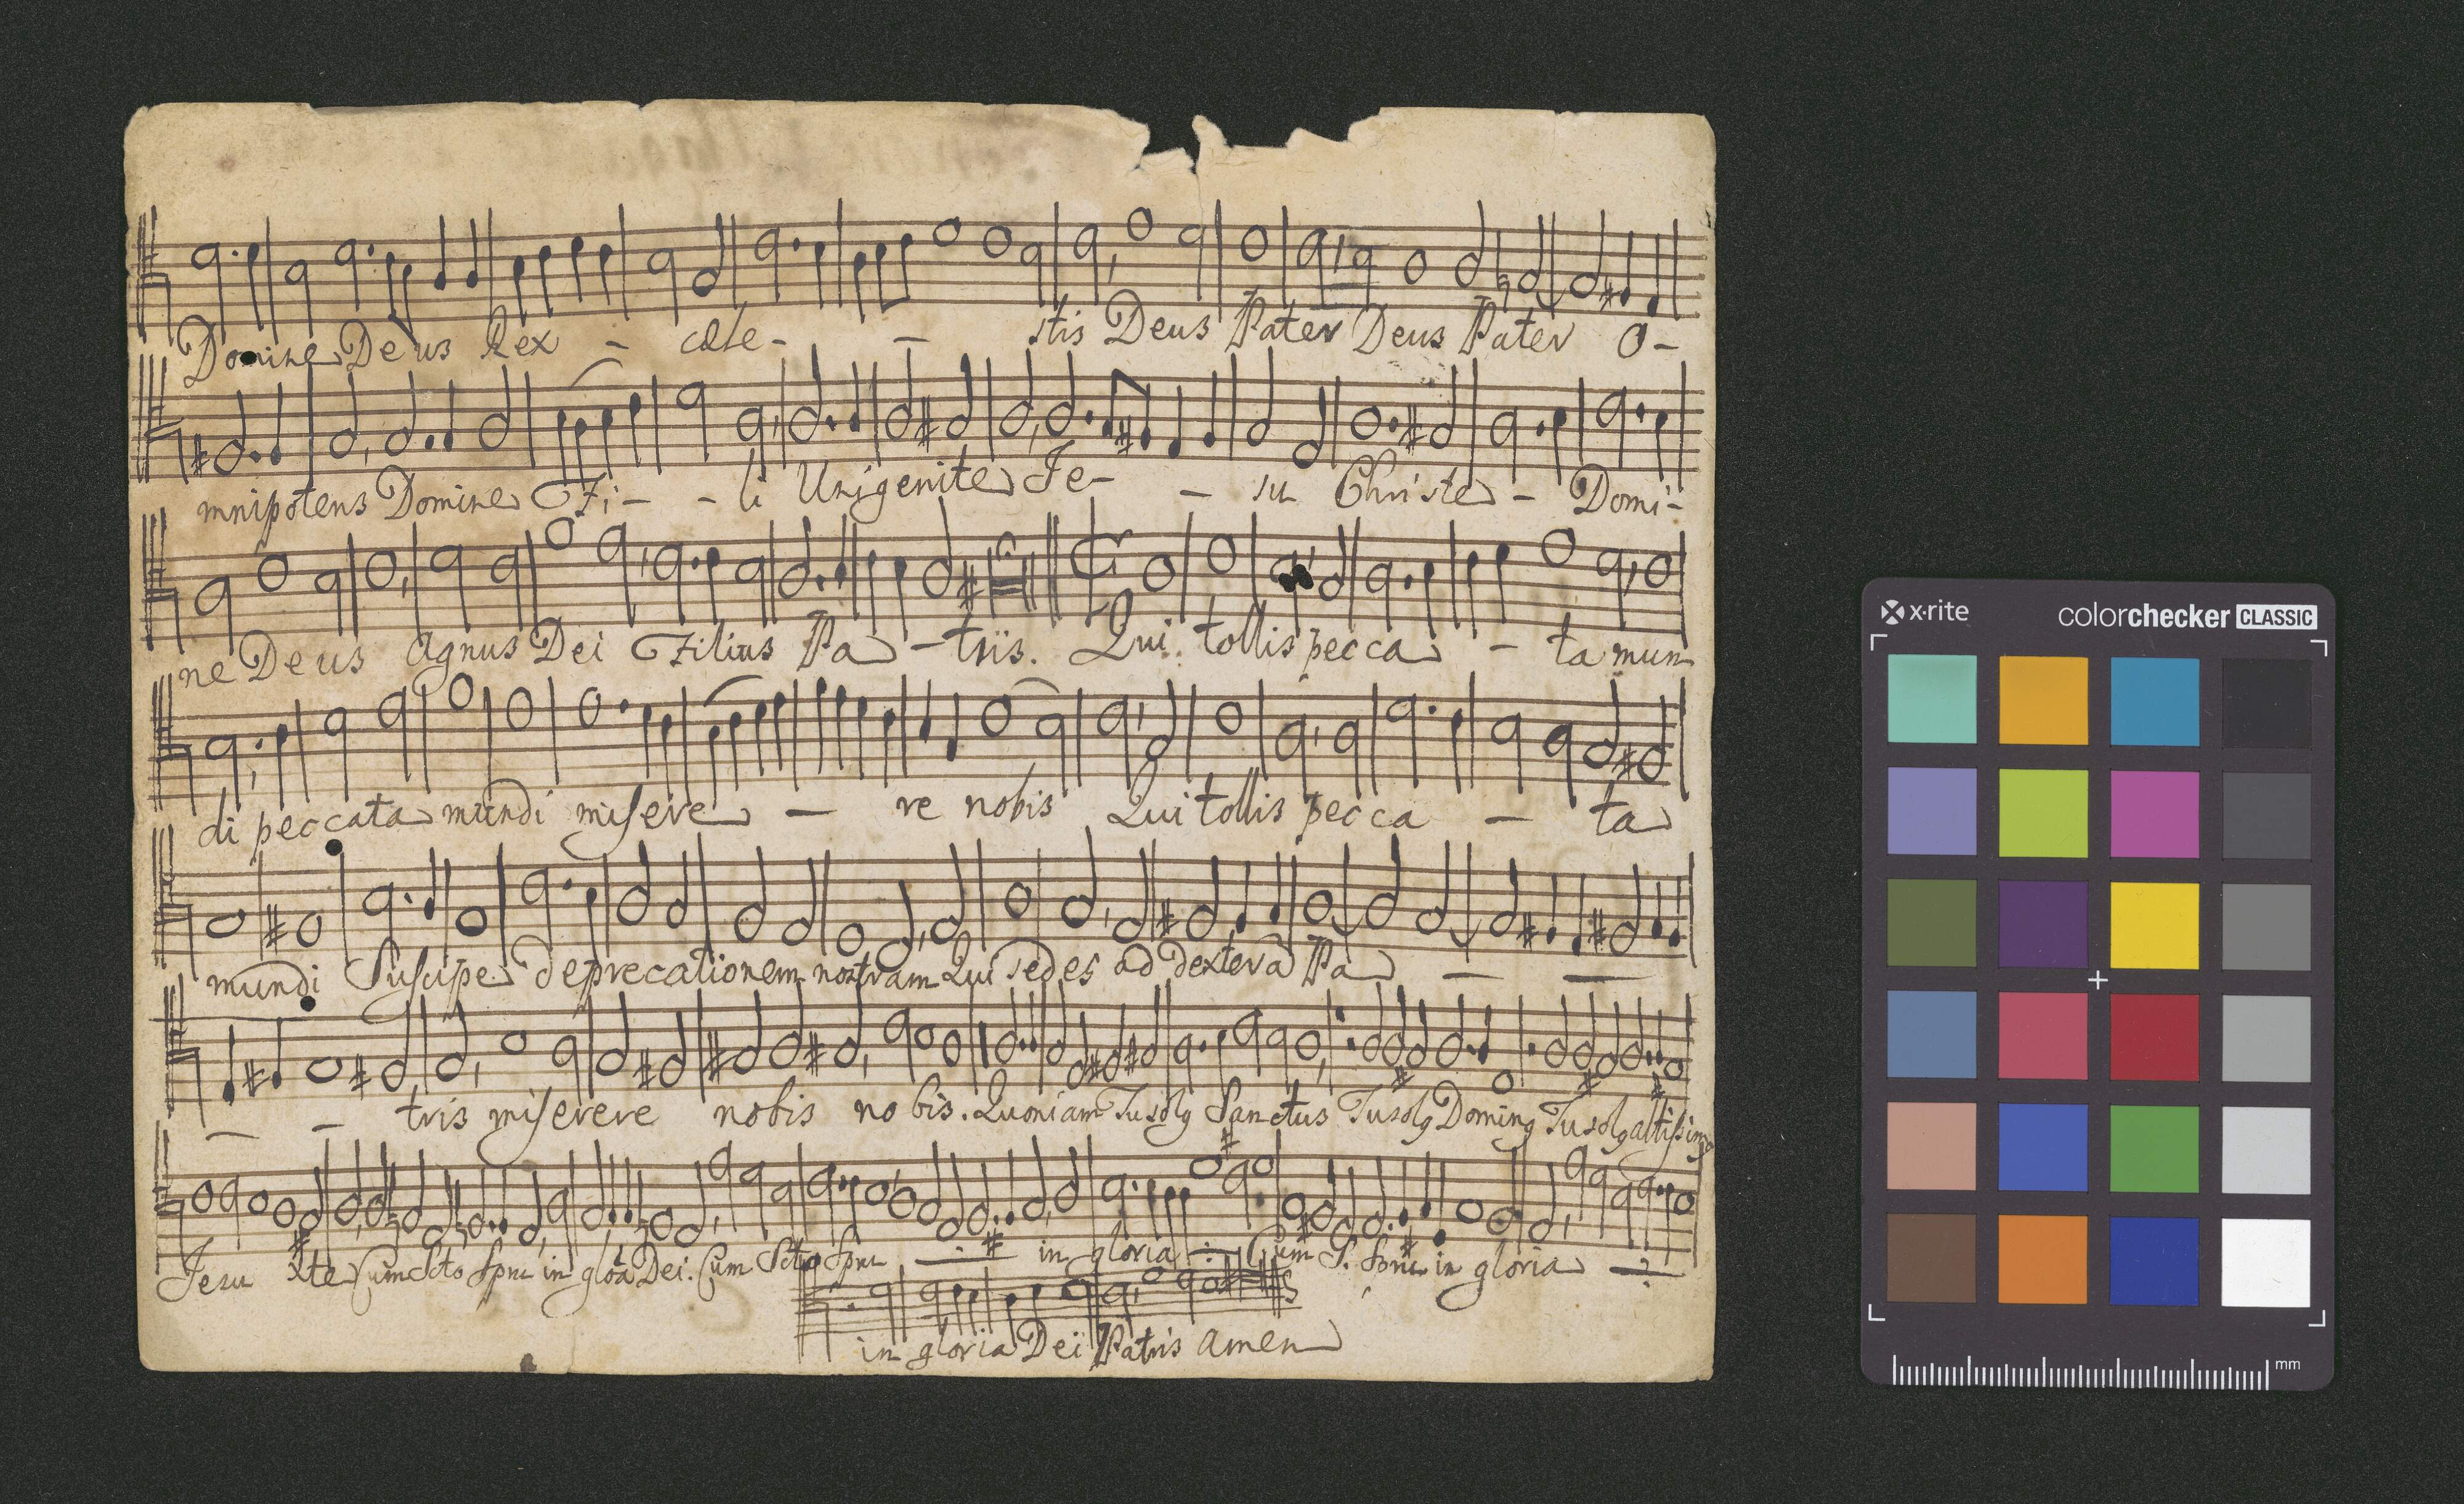 Domine Deus Rex - cæle- - stis Deus Pater Deus Pater O-
mnipotens Domine Fi- - li Unigenite Je- - su Christe - Domi-
ne Deus Agnus Dei Filius Pa - tris. Qui tollis pecca - ta mun
di peccata mundi misere - re nobis Qui tollis pecca - ta
mundi Suscipe deprecationem nostram Qui sedes ad dexterã Pa - -
- - tris miserere nobis nobis. Quoniam Tu solg Sanctus Tu solg Doming Tu solg altissimg
Jesu Xte Cum Scto Spru in gloã Dei. Cum Scto Spru -:- in gloria -:- Cum S. Spru in gloria -:-
in gloria Dei Patris Amen
x·rite colorchecker CLASSIC
mm